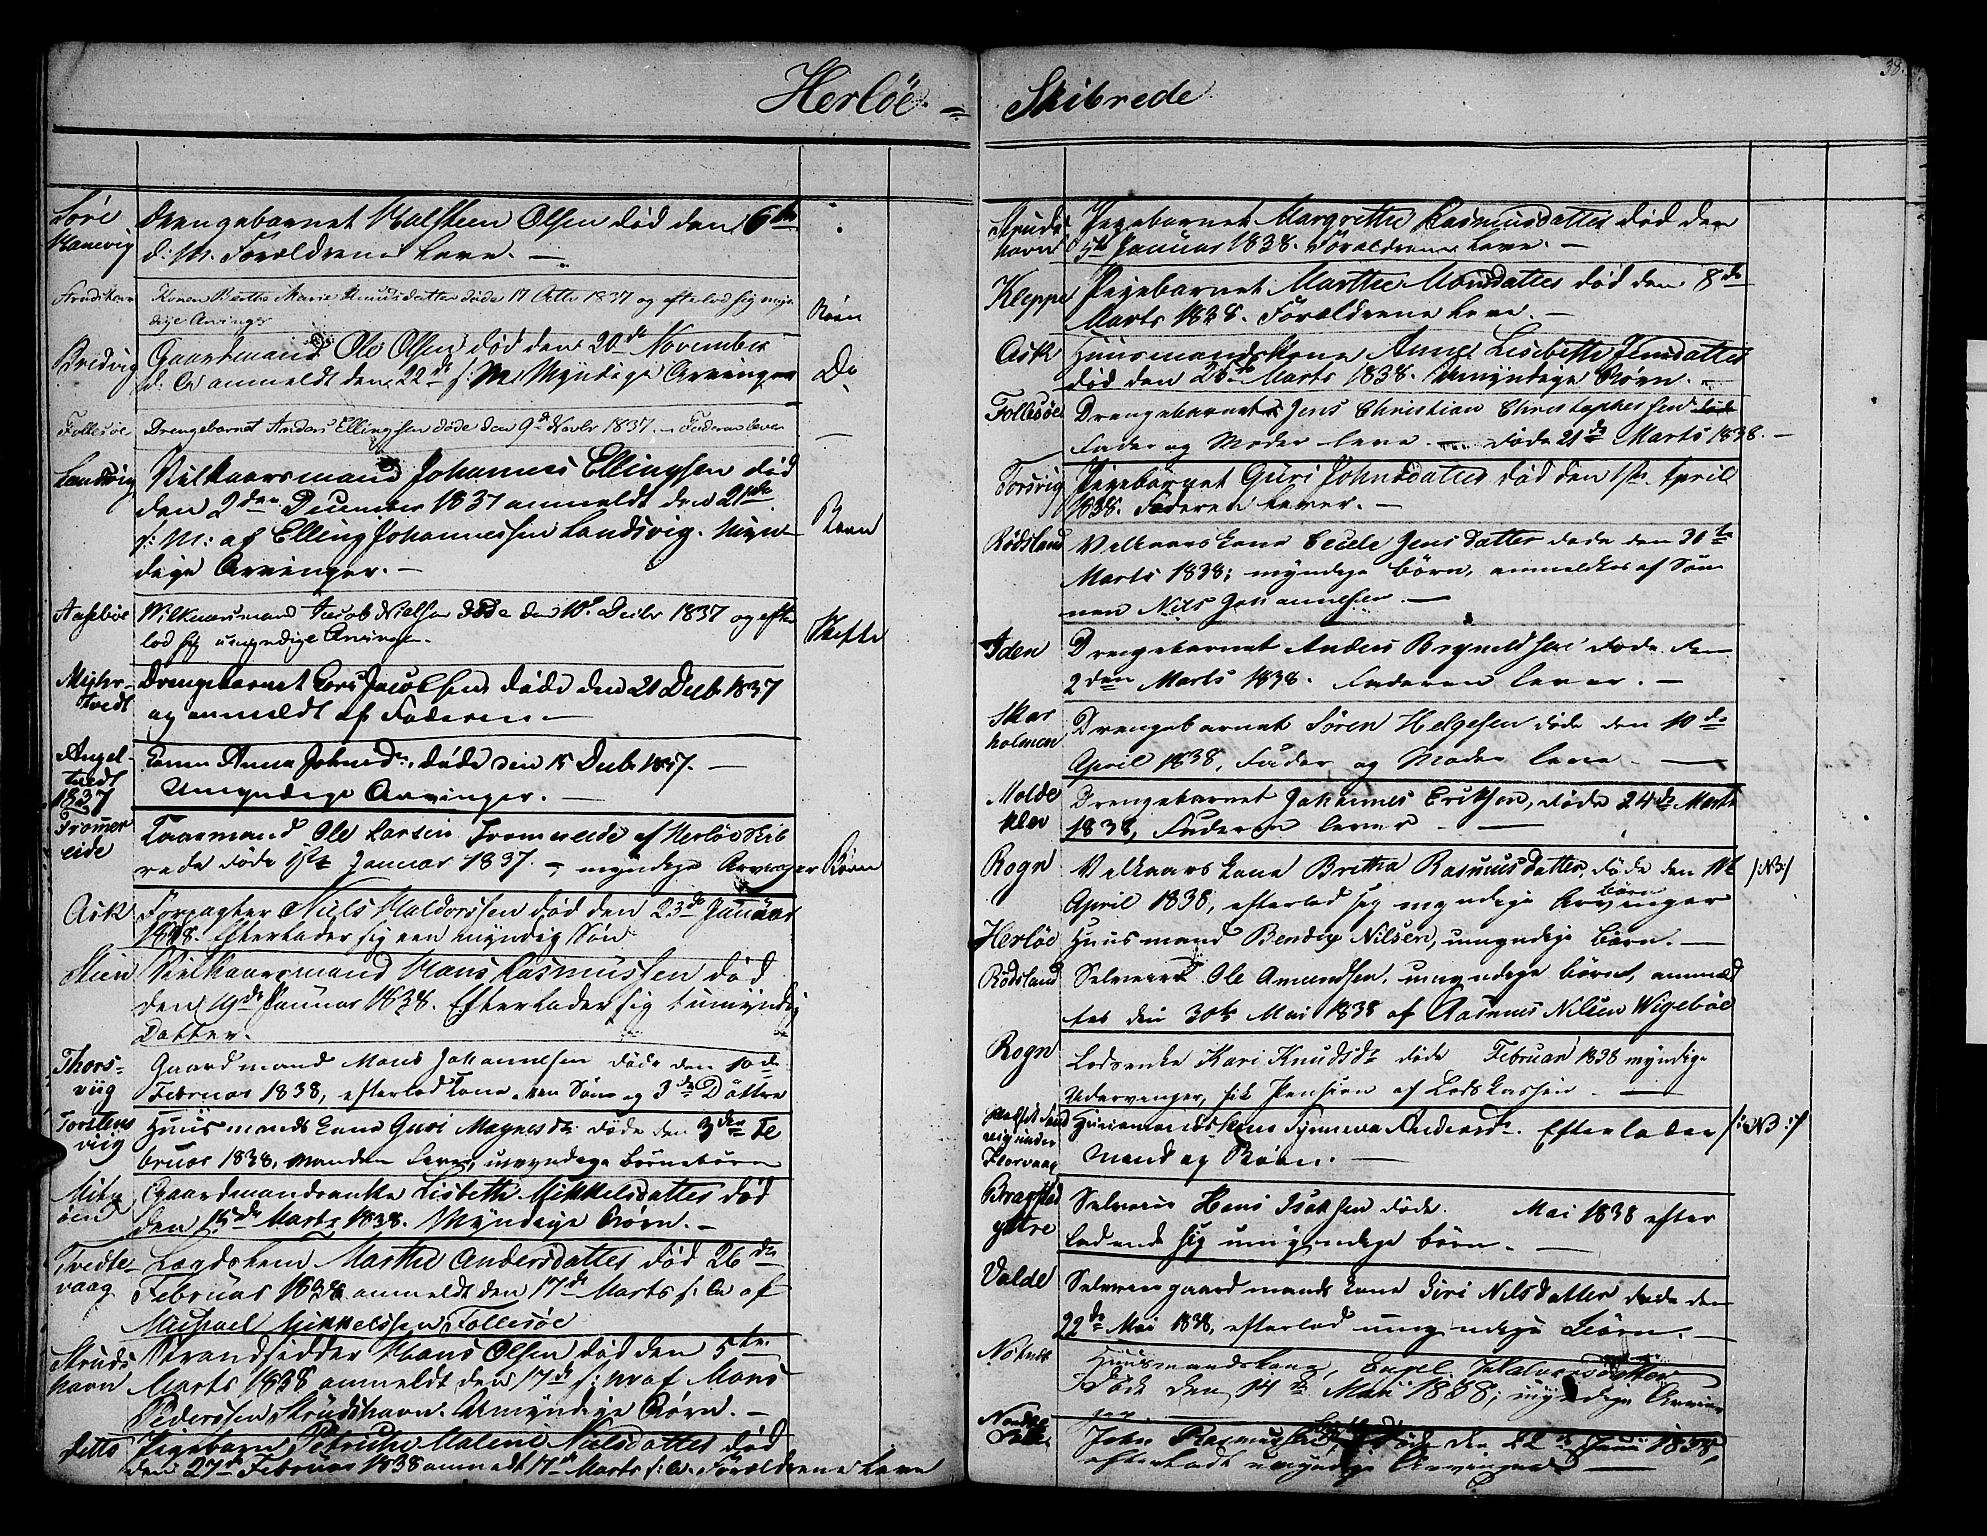 Herlöe =
Drengebarnet Halsteen Olsen död den 6te
d: M. Forældrene leve. —
Konen Berthe Marie Knudsdatter døde 17 Octbr 1837 og efterlod sig myn
dige Arvinger
Börn
Bredvig Gaardmand Ole Olsen död den 20de November
d. A anmeldt den 22de s: M. Myndige Arvenger
Do
Follesöe Drengebarnet Anders Ellingsen døde den 9de Novbr 1837. — Faderen lever —
Landsvig Vilkaarsmand Johannes Ellingsen död
den 2den December 1837 anmeldt den 21de
s: M: af Elling Johannessen Landsvig. Myn
dige Arvinger. —
Börn
Vilkaarsmand Jacob Nielsen døde den Decbr 1837 og efter
lod sig umyndige Arvinger.
Skifte
Drengebarnet Lars Jacobsen døde den 21 Decb 1837
og anmeldt af Faderen —
Angel-
tvedt
1837
Konen Anna Johnsd. døde den 15 Decb. 1837. —
Umyndige Arvinger. —
Tromer
eide
Ole Larsen Tromereide af Herlöe Skib
rede døde 1ste Januar 1837. — myndige Arvinger
Börn
Ask Forpagter Niels Haldorssen död den 23de Januar
1838. Efterlader sig een myndig Sön
Vilkaarsmand Hans Rasmussen död
den 19de Januar 1838. Efterlader sig 1 umyndig
Datter.
Thors-
viig
Gaardmand Mons Johannesen døde den 10de
Februar 1838, efterlod Kone, een Søn og 3de Döttre
Torstens
viig
Huusmands Kone Guri Magnesdr døde den 3den Fe
bruar 1838, Manden lever, umyndige Börnebörn
Gaardmandsenke Lisbeth Mikkelsdatter död
den 15de Marts 1838. Myndige Börn. —
Tvedte-
vaag
Lægdslem Marthe Andersdatter död 26de
Februar 1838 anmeldt den 17de Marts s: A af
Michael Mikkelssen Follesöe
Struds
havn
Strandsedder Hans Olsen död den 5te
Marts 1838 anmeldt den 17de s: M af Mons
Pederssen Strudshavn. Umyndige Börn. —
ditto Pigebarn Petriche Malene Nielsdatter död
den 27de Februar 1838 anmeldt 17de Marts s: A. Forældrene leve
Skibrede
38.
Struds
havn
Pigebarnet Margrethe Rasmusdatter död den
5te Januar 1838. Forældrene leve. —
Kleppe Pigebarnet Marthe Monsdatter död den 8de
Marts 1838. Forældrene leve. —
Ask Huusmandskone Anne Lisebeth Jensdatter
död den 26de Marts 1838. Umyndige Börn. —
Follesöe Drengebarnet Jens Christian Christophersen døde
Fader og Moder leve — døde 21de Marts 1838. —
Torsvig Pigebarnet Guri Johnsdatter död den 1ste April
1838. Faderen lever. —
Rødsland Vilkaarskone Cecele Jensdatter døde den 31te
Marts 1838; myndige börn, anmeldtes af Søn
nen Nils Johannesen —
Iden Drengebarnet Anders Brynildsen døde den
2den Marts 1838. Faderen lever. —
Skar
holmen
Drengebarnet Sören Helgesen døde den 10de
April 1838, Fader og Moder leve —
Molde
klev
Drengebarnet Johannes Eriksen, døde 24de Marts
1838, Faderen lever —
Rogn Vilkaarskone Bretha Rasmusdatter, døde den 11te
/:NB:/
April 1838, efterlod sig myndige Arvinger
börn
Herlöe Huusmand Bendix Nilsen, umyndige börn. —
Rødsland Selveier Ole Amundsen, umyndige börn, anmeld
tes den 30te Mai 1838 af Rasmus Nilsen Wigebøe
Rogn Lodsenke Kari Knudsdr døde Februar 1838 myndige
Udarvenger, fik Pension af Lodskassen. —
Synneva Andersdr. Efterlader
/:NB:/
Mand og Börn. —
Bragstad
ytre
Selveier Hans Isaksen døde Mai 1838 efter
ladende sig umyndige börn. —
Valde Selveiergaardmandskone Siri Nilsdatter døde den
22de Mai 1838, efterlod umyndige Börn. —
Huusmandskone, Engel Halvorsdatter
døde den 14de Mai 1838; myndige Arvin
ger.
John Rasmussen døde den 22de Juni 1838,
efterladt umyndige Arvinger —